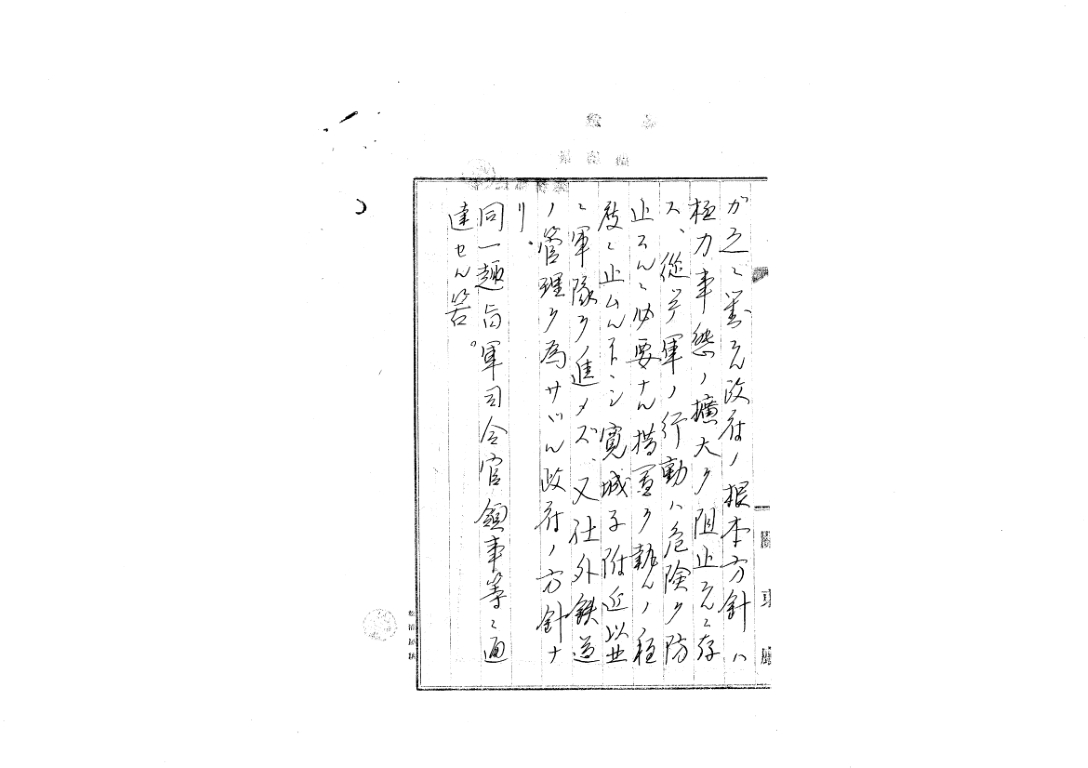 ガ之ニ對スル政府ノ根本方針ハ
極力事態ノ擴大ヲ阻止スルニ存
ス、從テ軍ノ行動ハ危険ヲ防
止スルニ必要ナル措置ヲ執ルノ程
度ニ止ムル トシ寛城子附近以北
ニ軍隊ヲ進メズ、又社外鉄道
ノ管理ヲ為サザル政府ノ方針ナ
リ.
同一趣旨軍司令官領事等ニ通
達セル筈。
關東廳